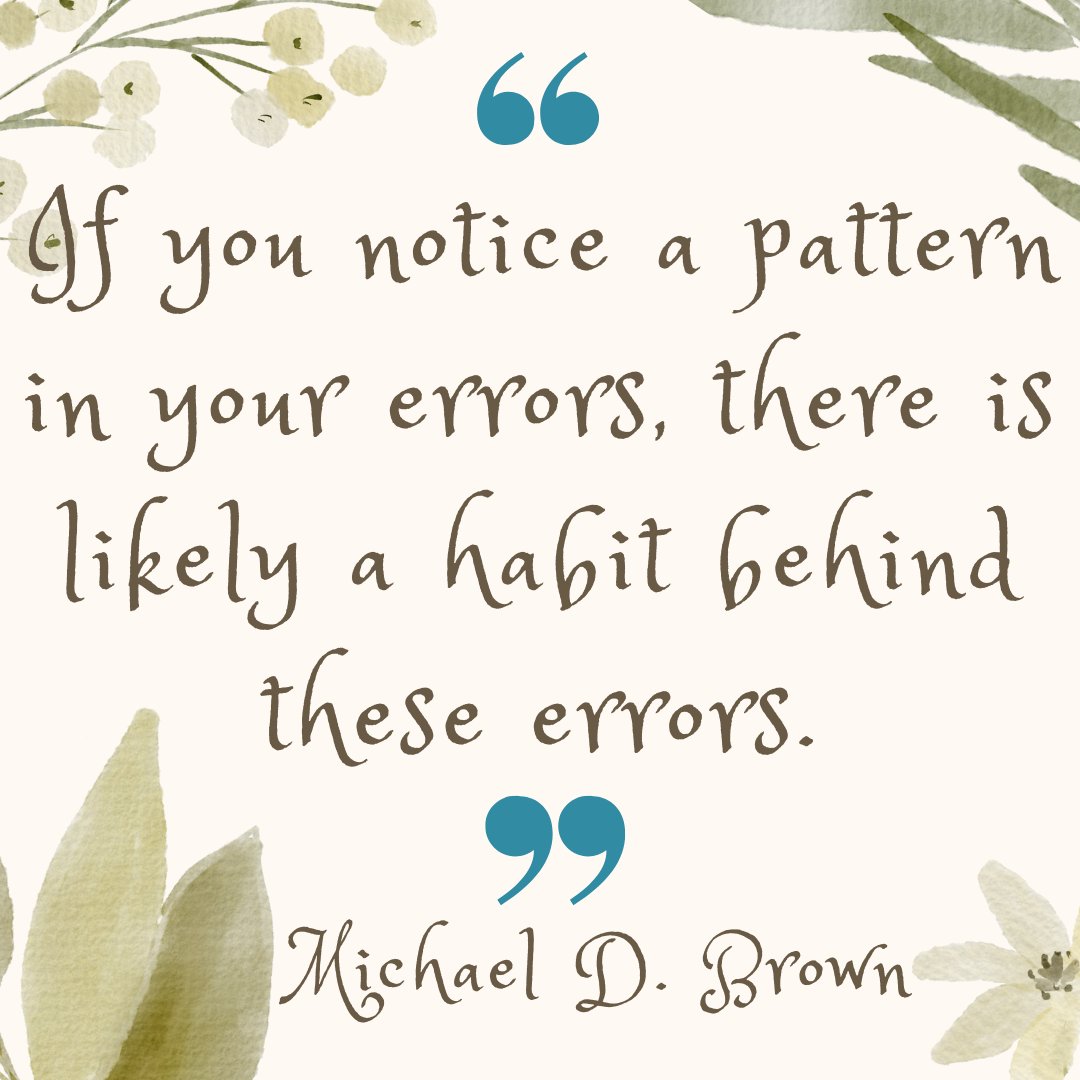 “
If you notice a pattern
in your errors, there is
likely a habit behind
these errors.
”
Michael D. Brown